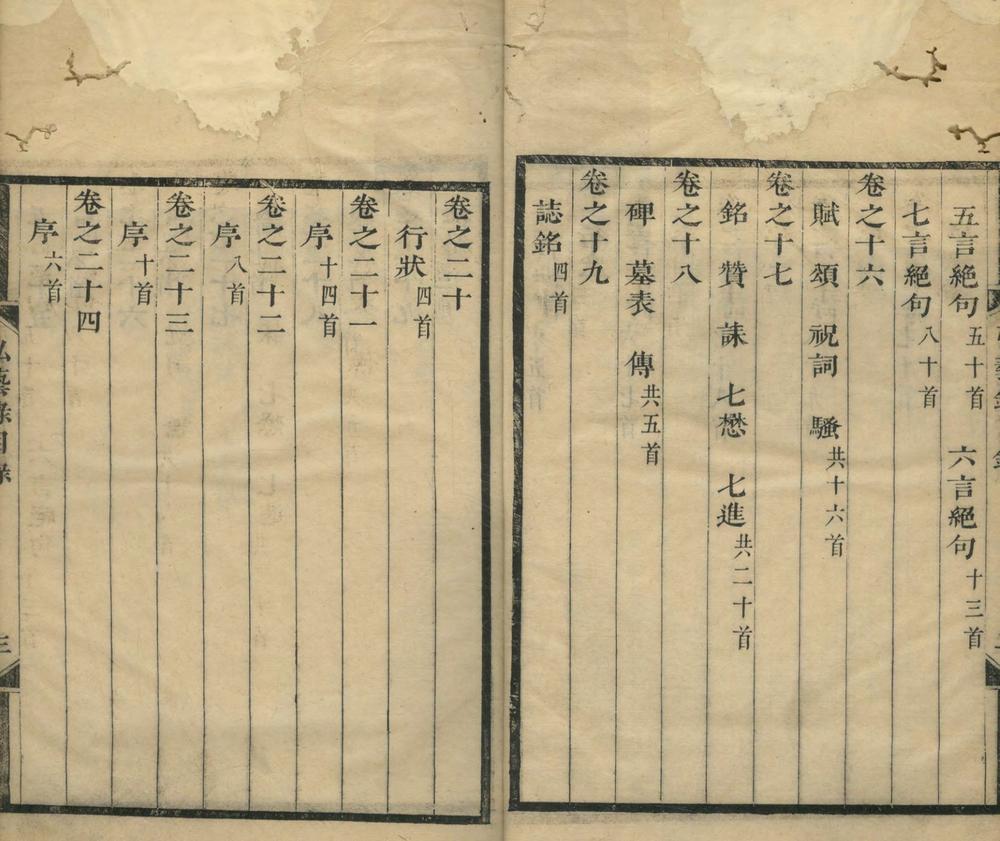 五言絕句五十首　六言絕句十三首
七言絕句八十首
卷之十六
賦　頌　祝詞　騷共十六首
卷之十七
銘　贊　誄　七懋　七進共二十首
卷之十八
碑　墓表　傳共五首
卷之十九
誌銘四首
卷之二十
行狀四首
卷之二十一
序十四首
卷之二十二
序八首
卷之二十三
序十首
卷之二十四
序六首
弘藝錄目錄　三